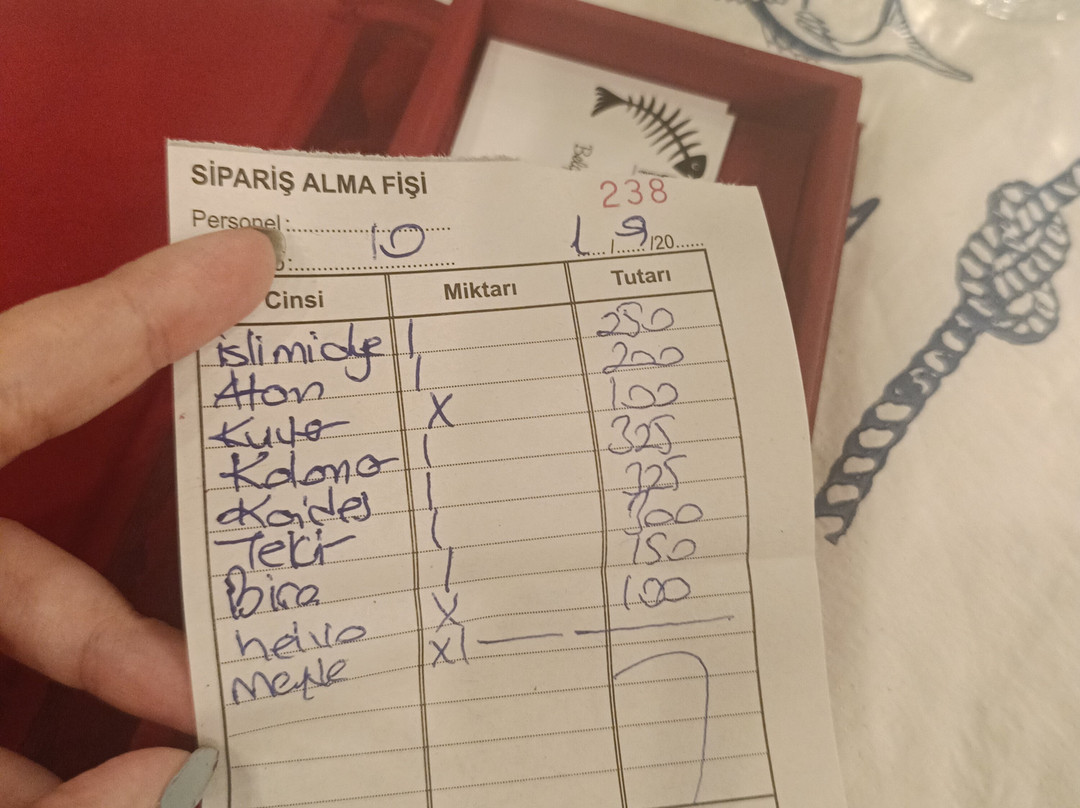 SİPARİŞ ALMA FİŞİ
238
Personel:
10
1 / 9 /20......
Cinsi Miktarı Tutarı
islimidye | 250
Aton | 200
Kuver X 100
Kalama | 325
Karides | 325
Tekir | 700
Bira | 150
helva X 100
meyve X|